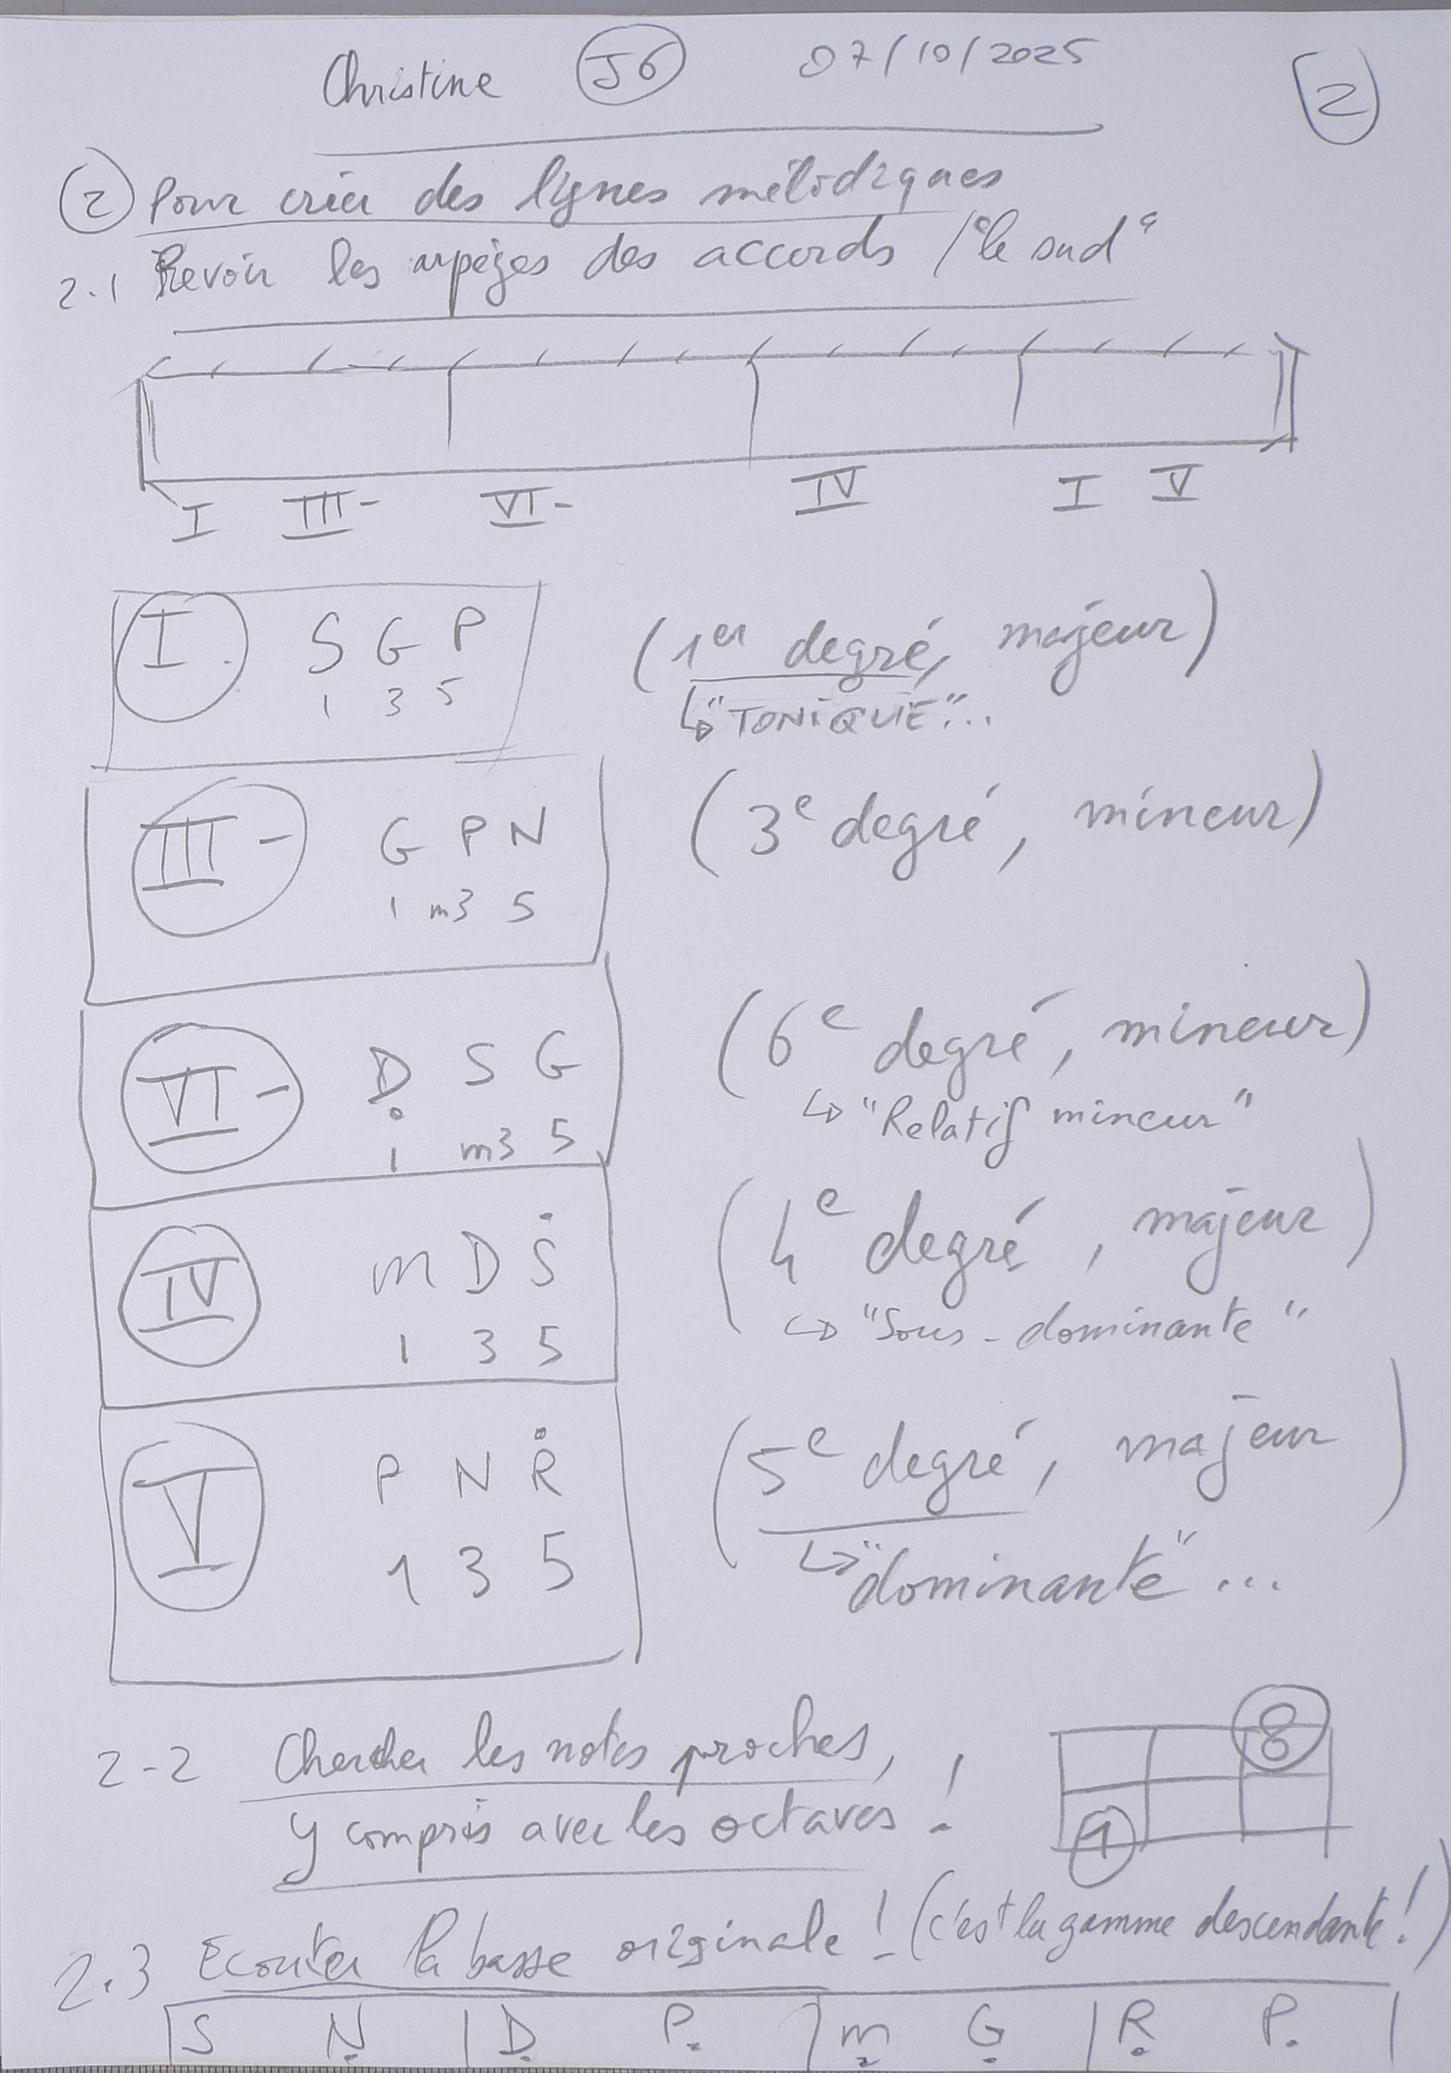 Christine J6 07/10/2025 2
2 Pour créer des lignes mélodiques
2.1 Revoir les arpèges des accords / "le sud"
I III- VI- IV I V
I S G P (1er degré, majeur)
1 3 5 ↳ "TONIQUE"...
III- G P N (3e degré, mineur)
1 m3 5
VI- Ḍ S G (6e degré, mineur)
1 m3 5 ↳ "Relatif mineur"
IV m D Ṡ (4e degré, majeur)
1 3 5 ↳ "Sous-dominante"
V P N Ṙ (5e degré, majeur
1 3 5 ↳ "dominante"...
2-2 Chercher les notes proches, 8
y compris avec les octaves ! 1
2.3 Ecouter la basse originale ! (c'est la gamme descendante !)
| S Ṇ | Ḍ P. | ṃ G. | Ṛ P. |